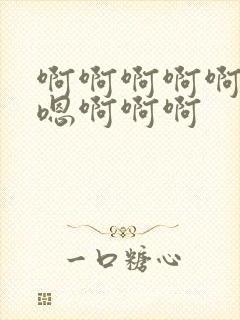 啊啊啊啊啊
嗯啊啊啊
一口糖心